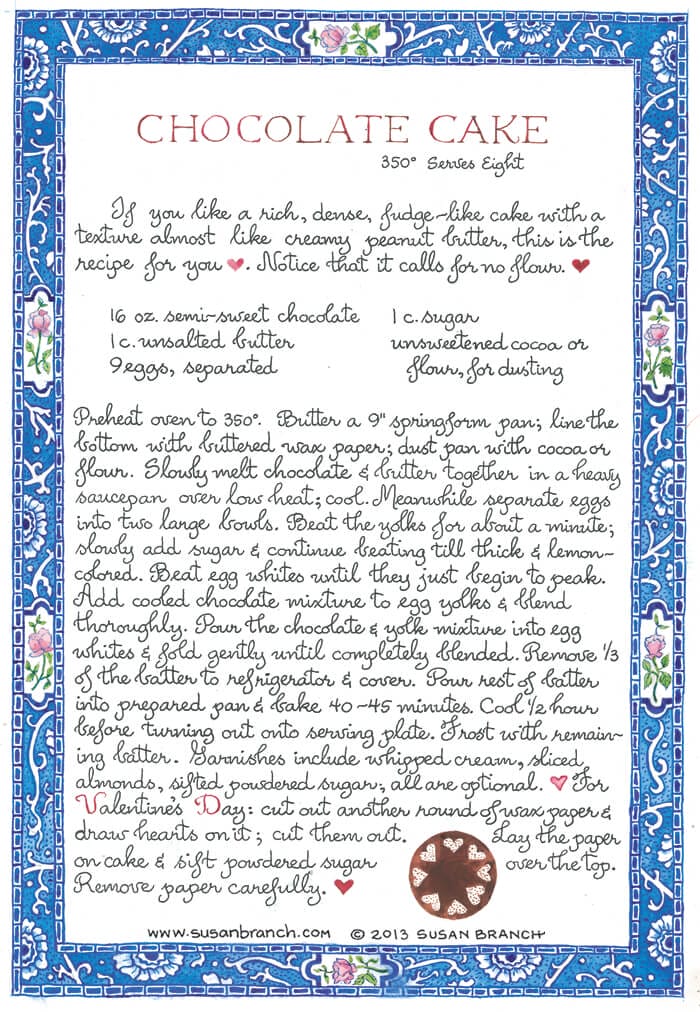 CHOCOLATE CAKE
350° Serves Eight
If you like a rich, dense, fudge-like cake with a
texture almost like creamy peanut butter, this is the
recipe for you ♥. Notice that it calls for no flour. ♥
16 oz. semi-sweet chocolate
1 c. unsalted butter
9 eggs, separated
1 c. sugar
unsweetened cocoa or
flour, for dusting
Preheat oven to 350°. Butter a 9" springform pan; line the
bottom with buttered wax paper; dust pan with cocoa or
flour. Slowly melt chocolate & butter together in a heavy
saucepan over low heat; cool. Meanwhile separate eggs
into two large bowls. Beat the yolks for about a minute;
slowly add sugar & continue beating till thick & lemon-
colored. Beat egg whites until they just begin to peak.
Add cooled chocolate mixture to egg yolks & blend
thoroughly. Pour the chocolate & yolk mixture into egg
whites & fold gently until completely blended. Remove 1/3
of the batter to refrigerator & cover. Pour rest of batter
into prepared pan & bake 40-45 minutes. Cool 1/2 hour
before turning out onto serving plate. Frost with remain-
ing batter. Garnishes include whipped cream, sliced
almonds, sifted powdered sugar; all are optional. ♥ For
Valentine's Day: cut out another round of wax paper &
draw hearts on it; cut them out. Lay the paper
on cake & sift powdered sugar over the top.
Remove paper carefully. ♥
www.susanbranch.com © 2013 SUSAN BRANCH